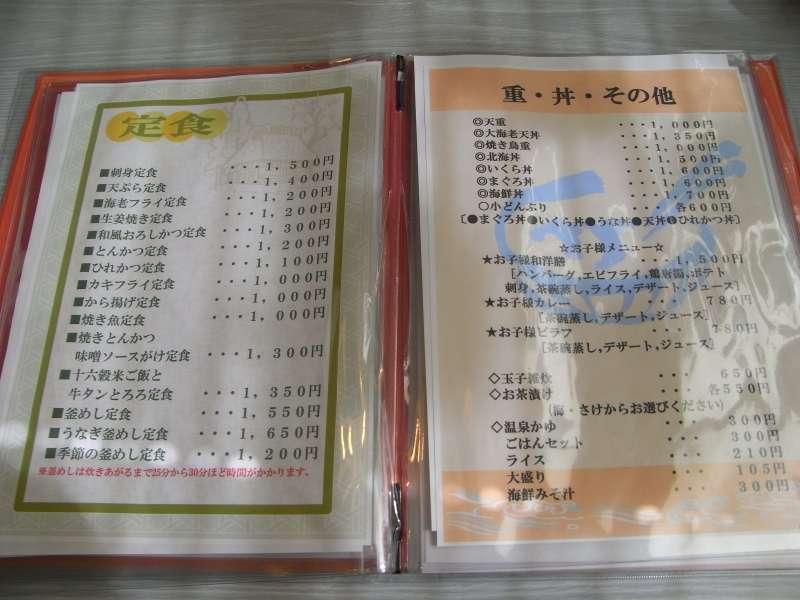 定食
■刺身定食 ・・・1,500円
■天ぷら定食 ・・・1,400円
■海老フライ定食 ・・・1,200円
■生姜焼き定食 ・・・1,200円
■和風おろしかつ定食 ・・・1,300円
■とんかつ定食 ・・・1,200円
■ひれかつ定食 ・・・1,100円
■カキフライ定食 ・・・1,000円
■から揚げ定食 ・・・1,000円
■焼き魚定食 ・・・1,000円
■焼きとんかつ
味噌ソースがけ定食 ・・・1,300円
■十六穀米ご飯と
牛タンとろろ定食 ・・・1,350円
■釜めし定食 ・・・1,550円
■うなぎ釜めし定食 ・・・1,650円
■季節の釜めし定食 ・・・1,200円
※釜めしは炊きあがるまで25分から30分ほど時間がかかります。
重・丼・その他
◎天重 ・・・1,000円
◎大海老天丼 ・・・1,350円
◎焼き鳥重 ・・・1,000円
◎北海丼 ・・・1,500円
◎いくら丼 ・・・1,600円
◎まぐろ丼 ・・・1,600円
◎海鮮丼 ・・・1,700円
○小どんぶり ・・・各600円
[●まぐろ丼●いくら丼●うな丼●天丼●ひれかつ丼]
☆お子様メニュー☆
★お子様和洋膳 ・・・1,500円
[ハンバーグ,エビフライ,鶏唐揚,ポテト
刺身,茶碗蒸し,ライス,デザート,ジュース]
★お子様カレー ・・・780円
[茶碗蒸し,デザート,ジュース]
★お子様ピラフ ・・・780円
[茶碗蒸し,デザート,ジュース]
◇玉子雑炊 ・・・650円
◇お茶漬け ・・・各550円
(梅・さけからお選びください)
◇温泉かゆ ・・・300円
ごはんセット ・・・300円
ライス ・・・210円
大盛り ・・・105円
海鮮みそ汁 ・・・300円